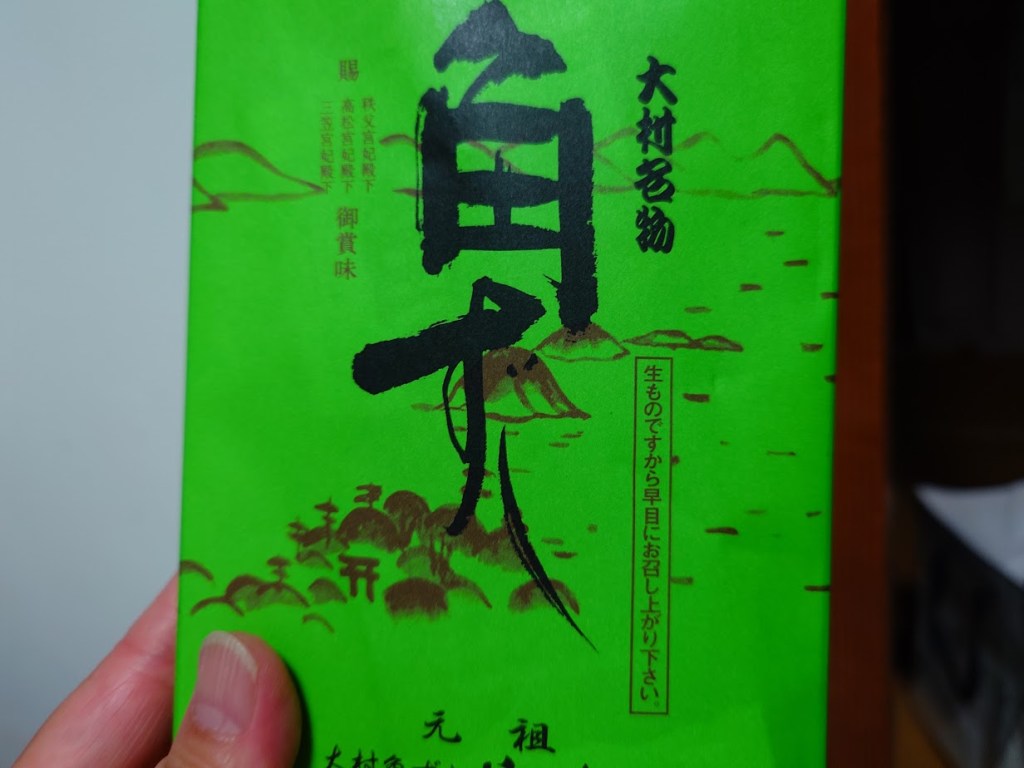 大村名物
角ずし
賜
秩父宮妃殿下
高松宮妃殿下
三笠宮妃殿下
御賞味
生ものですから早目にお召し上がり下さい。
元祖
大村角ずし